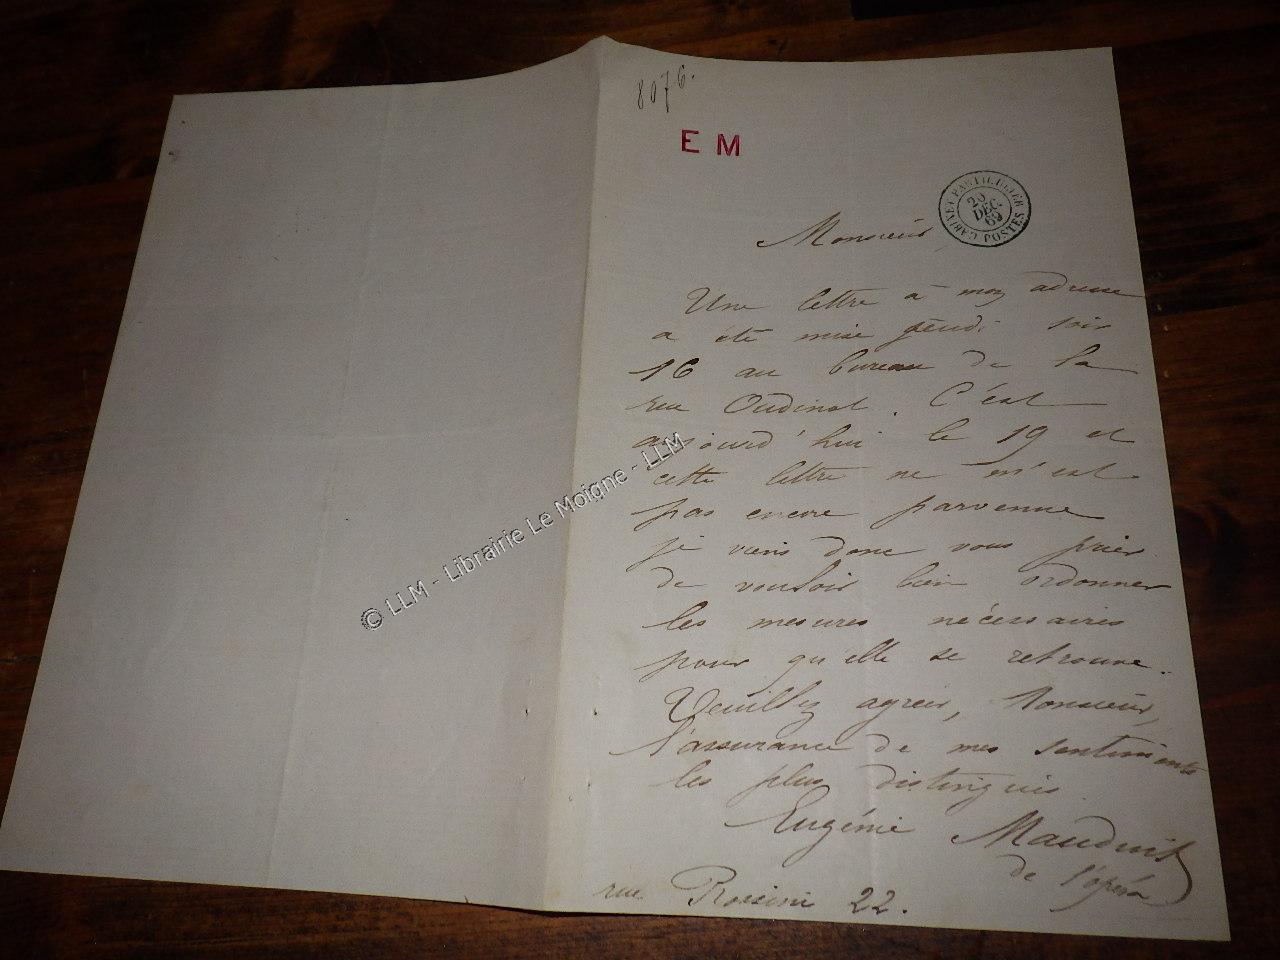 8076.
E M
CABINET PARTICULIER
20
DEC.
69
POSTES
Monsieur,
Une lettre à mon adresse
a été mise jeudi soir
16 au bureau de la
rue Oudinot. C'est
aujourd'hui le 19 et
cette lettre ne m'est
pas encore parvenue
je viens donc vous prier
de vouloir bien ordonner
les mesures nécessaires
pour qu'elle se retrouve.
Veuillez agréer, Monsieur,
l'assurance de mes sentiments
les plus distingués
Eugénie Mauduit
de l'opéra
rue Rossini 22.
© LLM - Librairie Le Moigne - LLM